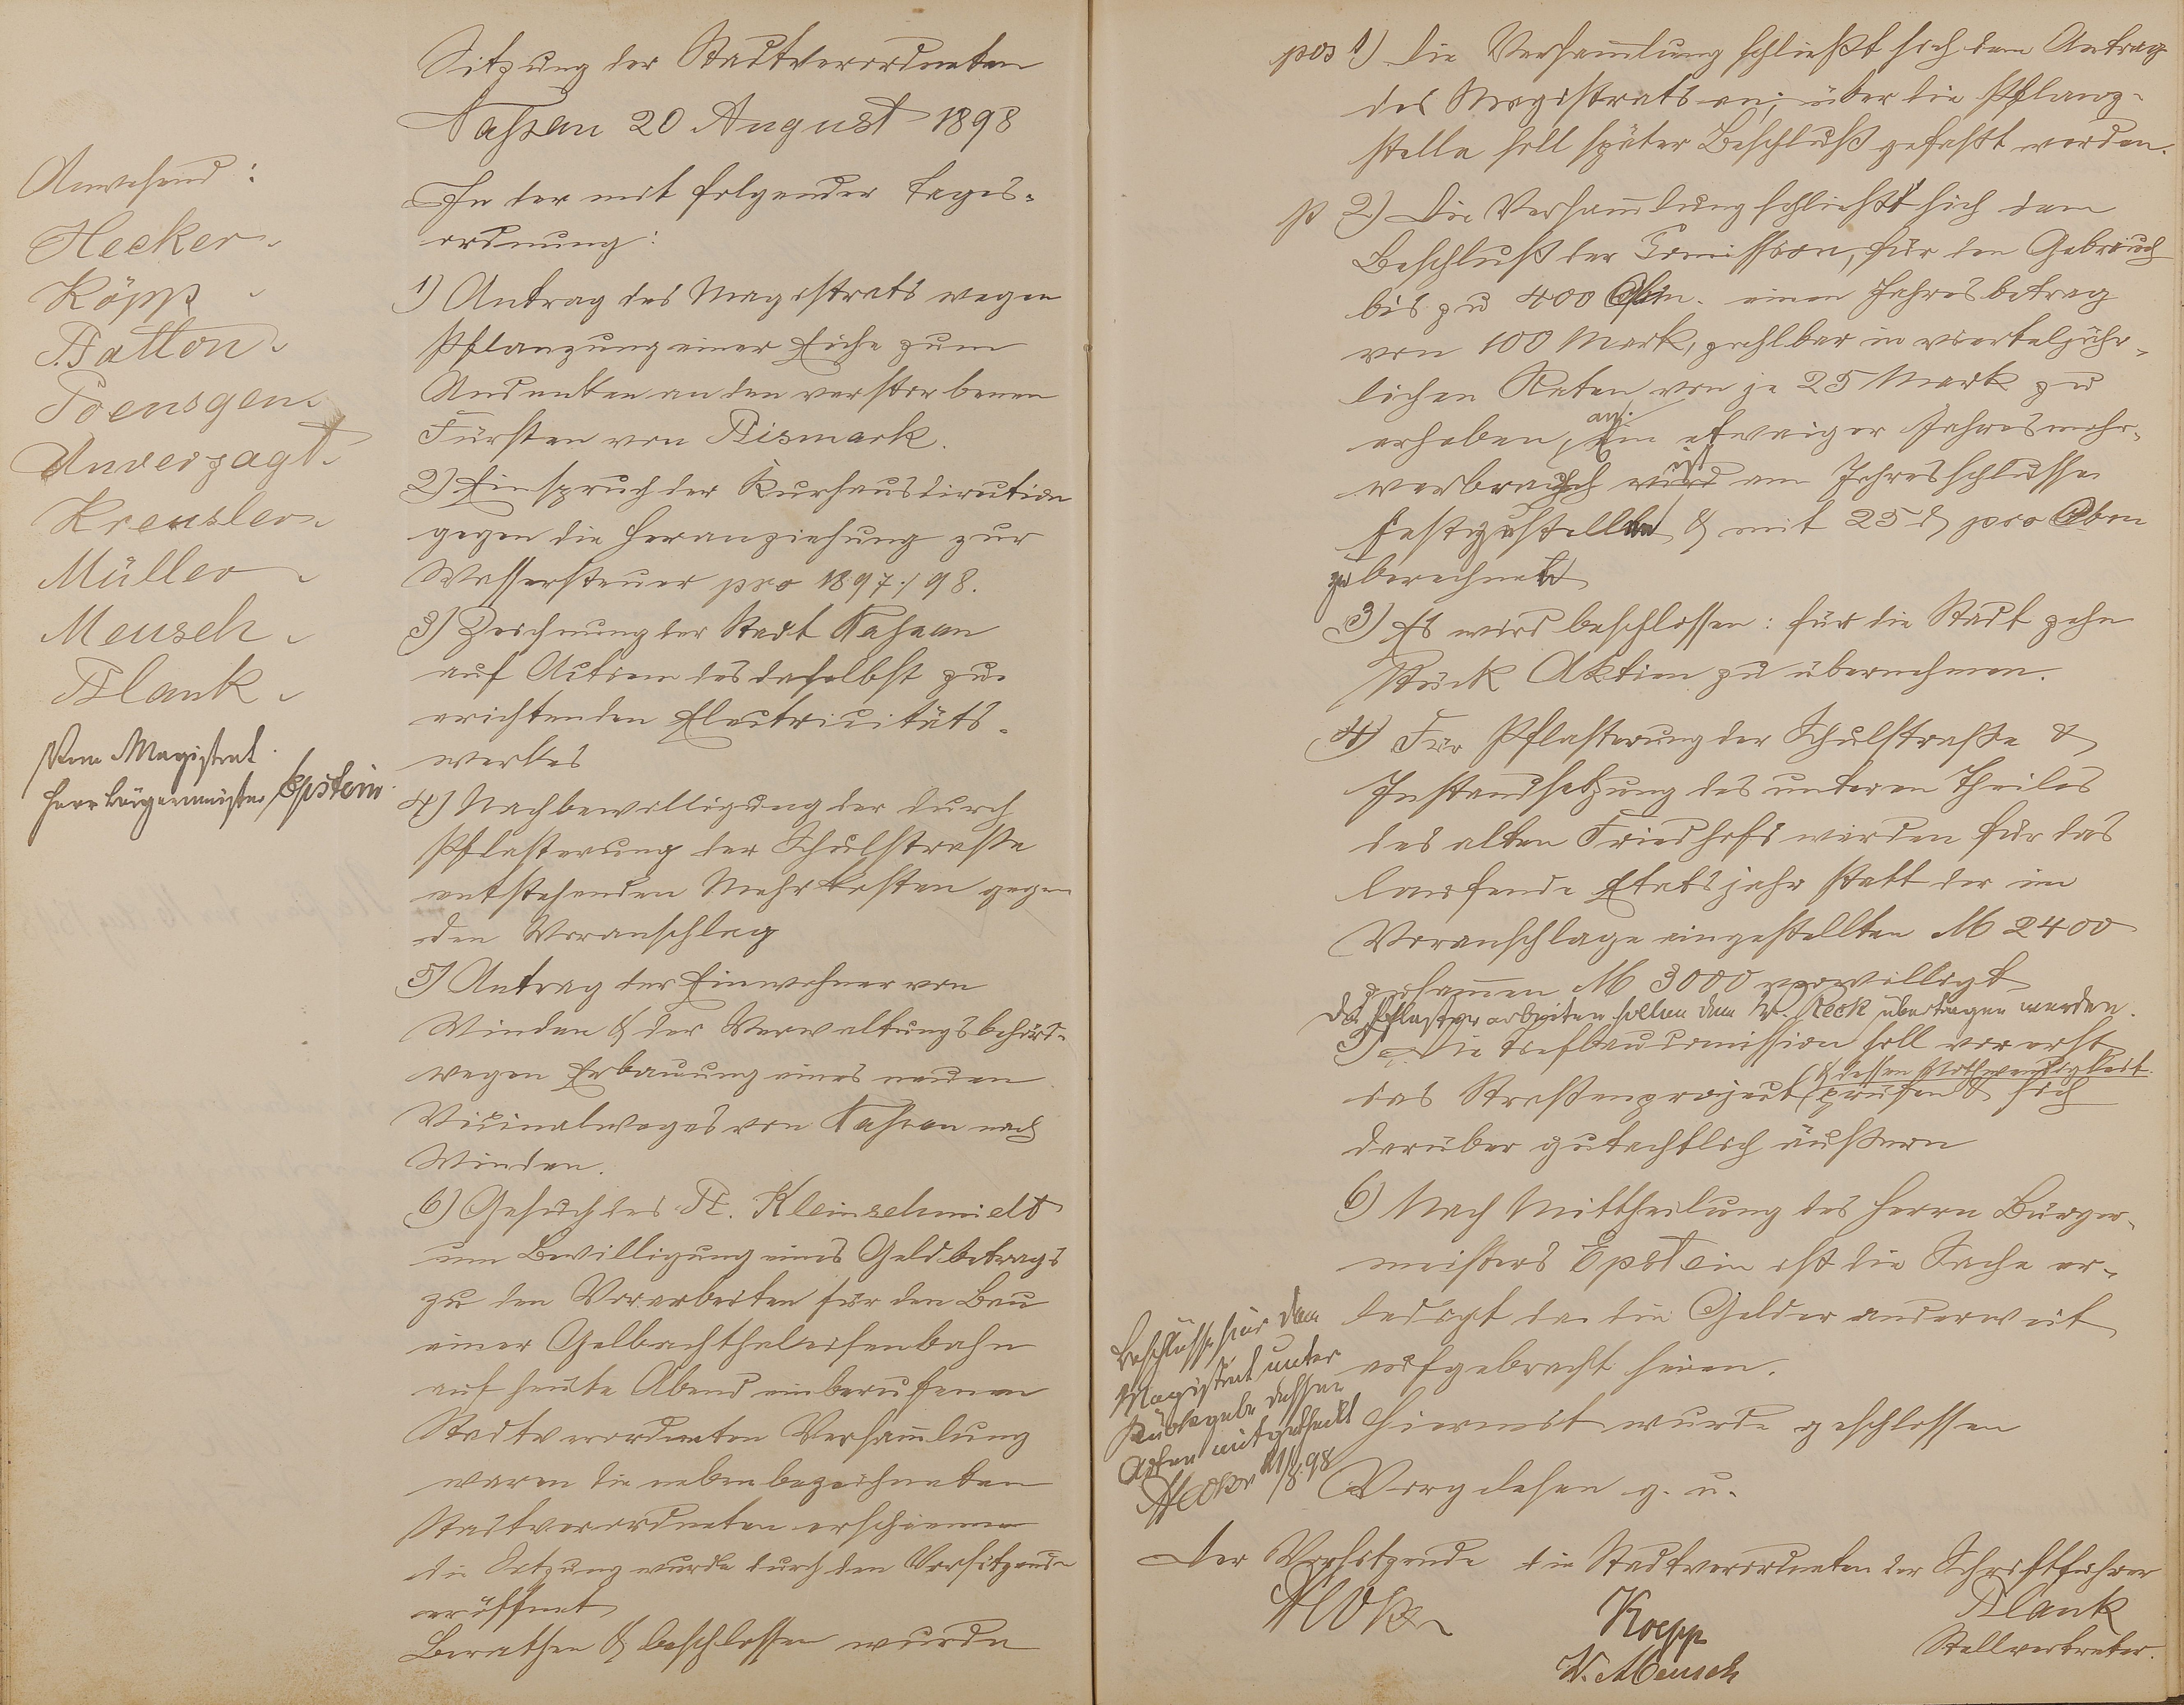 Sitzung der Stadtverordneten
Nassau 20 August 1898
Anwesend:
Hecker
Köpp
Batton
Poensgen
Unverzagt
Kreusler
Müller
Meusch
Blank
Vom Magistrat
Herr Bürgermeister Epstein
In der mit folgender Tages-
ordnung:
1) Antrag des Magistrats wegen
Pflanzung einer Eiche zum
Andenken an den verstorbenen
Fürsten von Bismark.
2) Einspruch der Kurhausdirection
gegen die Heranziehung zur
Wassersteuer pro 1897/98.
3) Zeichnung der Stadt Nassau
auf Actien des daselbst zu
errichtenden Electricitäts-
werkes
4) Nachbewilligung der durch
Pflasterung der Schulstraße
entstehenden Mehrkosten gegen
den Voranschlag
5) Antrag der Einwohner von
Winden & der Verwaltungsbehörde
wegen Erbauung eines neuen
Vicinalweges von Nassau nach
Winden.
6) Gesuch des Kleinschmidt
um Bewilligung eines Geldbetrags
zu den Vorarbeiten für den Bau
einer Gelbachthaleisenbahn
auf heute Abend einberufenen
Stadtverordneten Versam̄lung
waren die nebenbezeichneten
Stadtverordneten erschienen
die Sitzung wurde durch den Vorsitzende
eröffnet
Berathen & beschlossen wurde
pos 1) Die Versam̄lung schließt sich dem Antrag
des Magistrats an; über die Pflanz-
stelle soll später Beschluß gefaßt werden.
p 2) Die Versam̄lung schließt sich dem
Beschluß der Com̄ission, für den Gebrauch
bis zu 400 Cbm. einen Jahresbetrag
von 100 Mark, zahlbar in vierteljähr-
lichen Raten von je 25 Mark zu
erheben, an. Ein etwaiger Jahresmehr-
verbrauch ist am Jahresschlusse
festzustellen & mit 25 ₰ pro Cbm
zu berechnen
3) Es wird beschlossen: für die Stadt zehn
Stück Aktien zu übernehmen.
4) Für Pflasterung der Schulstraße &
Instandsetzung des unteren Theiles
des alten Friedhofs werden für das
laufende Etatsjahr statt der im
Voranschlage eingestellten M 2400
zusam̄en M 3000 verwilligt
Die Pflasterarbeiten sollen dem W. Keck übertragen werden.
5) Die Tiefbaucom̄ission soll vorerst
das Straßenproject & dessen Nothwendigkeit prüfen & sich
darüber gutachtlich äußern
6) Nach Mittheilung des Herrn Bürger-
meisters Epstein ist die Sache er-
ledigt da die Gelder anderweit
aufgebracht seien.
Hiermit wurde geschlossen
Beschlüsse hier dem
Magistrat unter
Rückgabe dessen
Akten mitgetheilt
Hecker 21/8.98
Vorgelesen g. u.
Der Vorsitzende die Stadtverordneten der Schriftführer
Hecker
Koepp
W. Meusch
Blank
Stellvertreter.